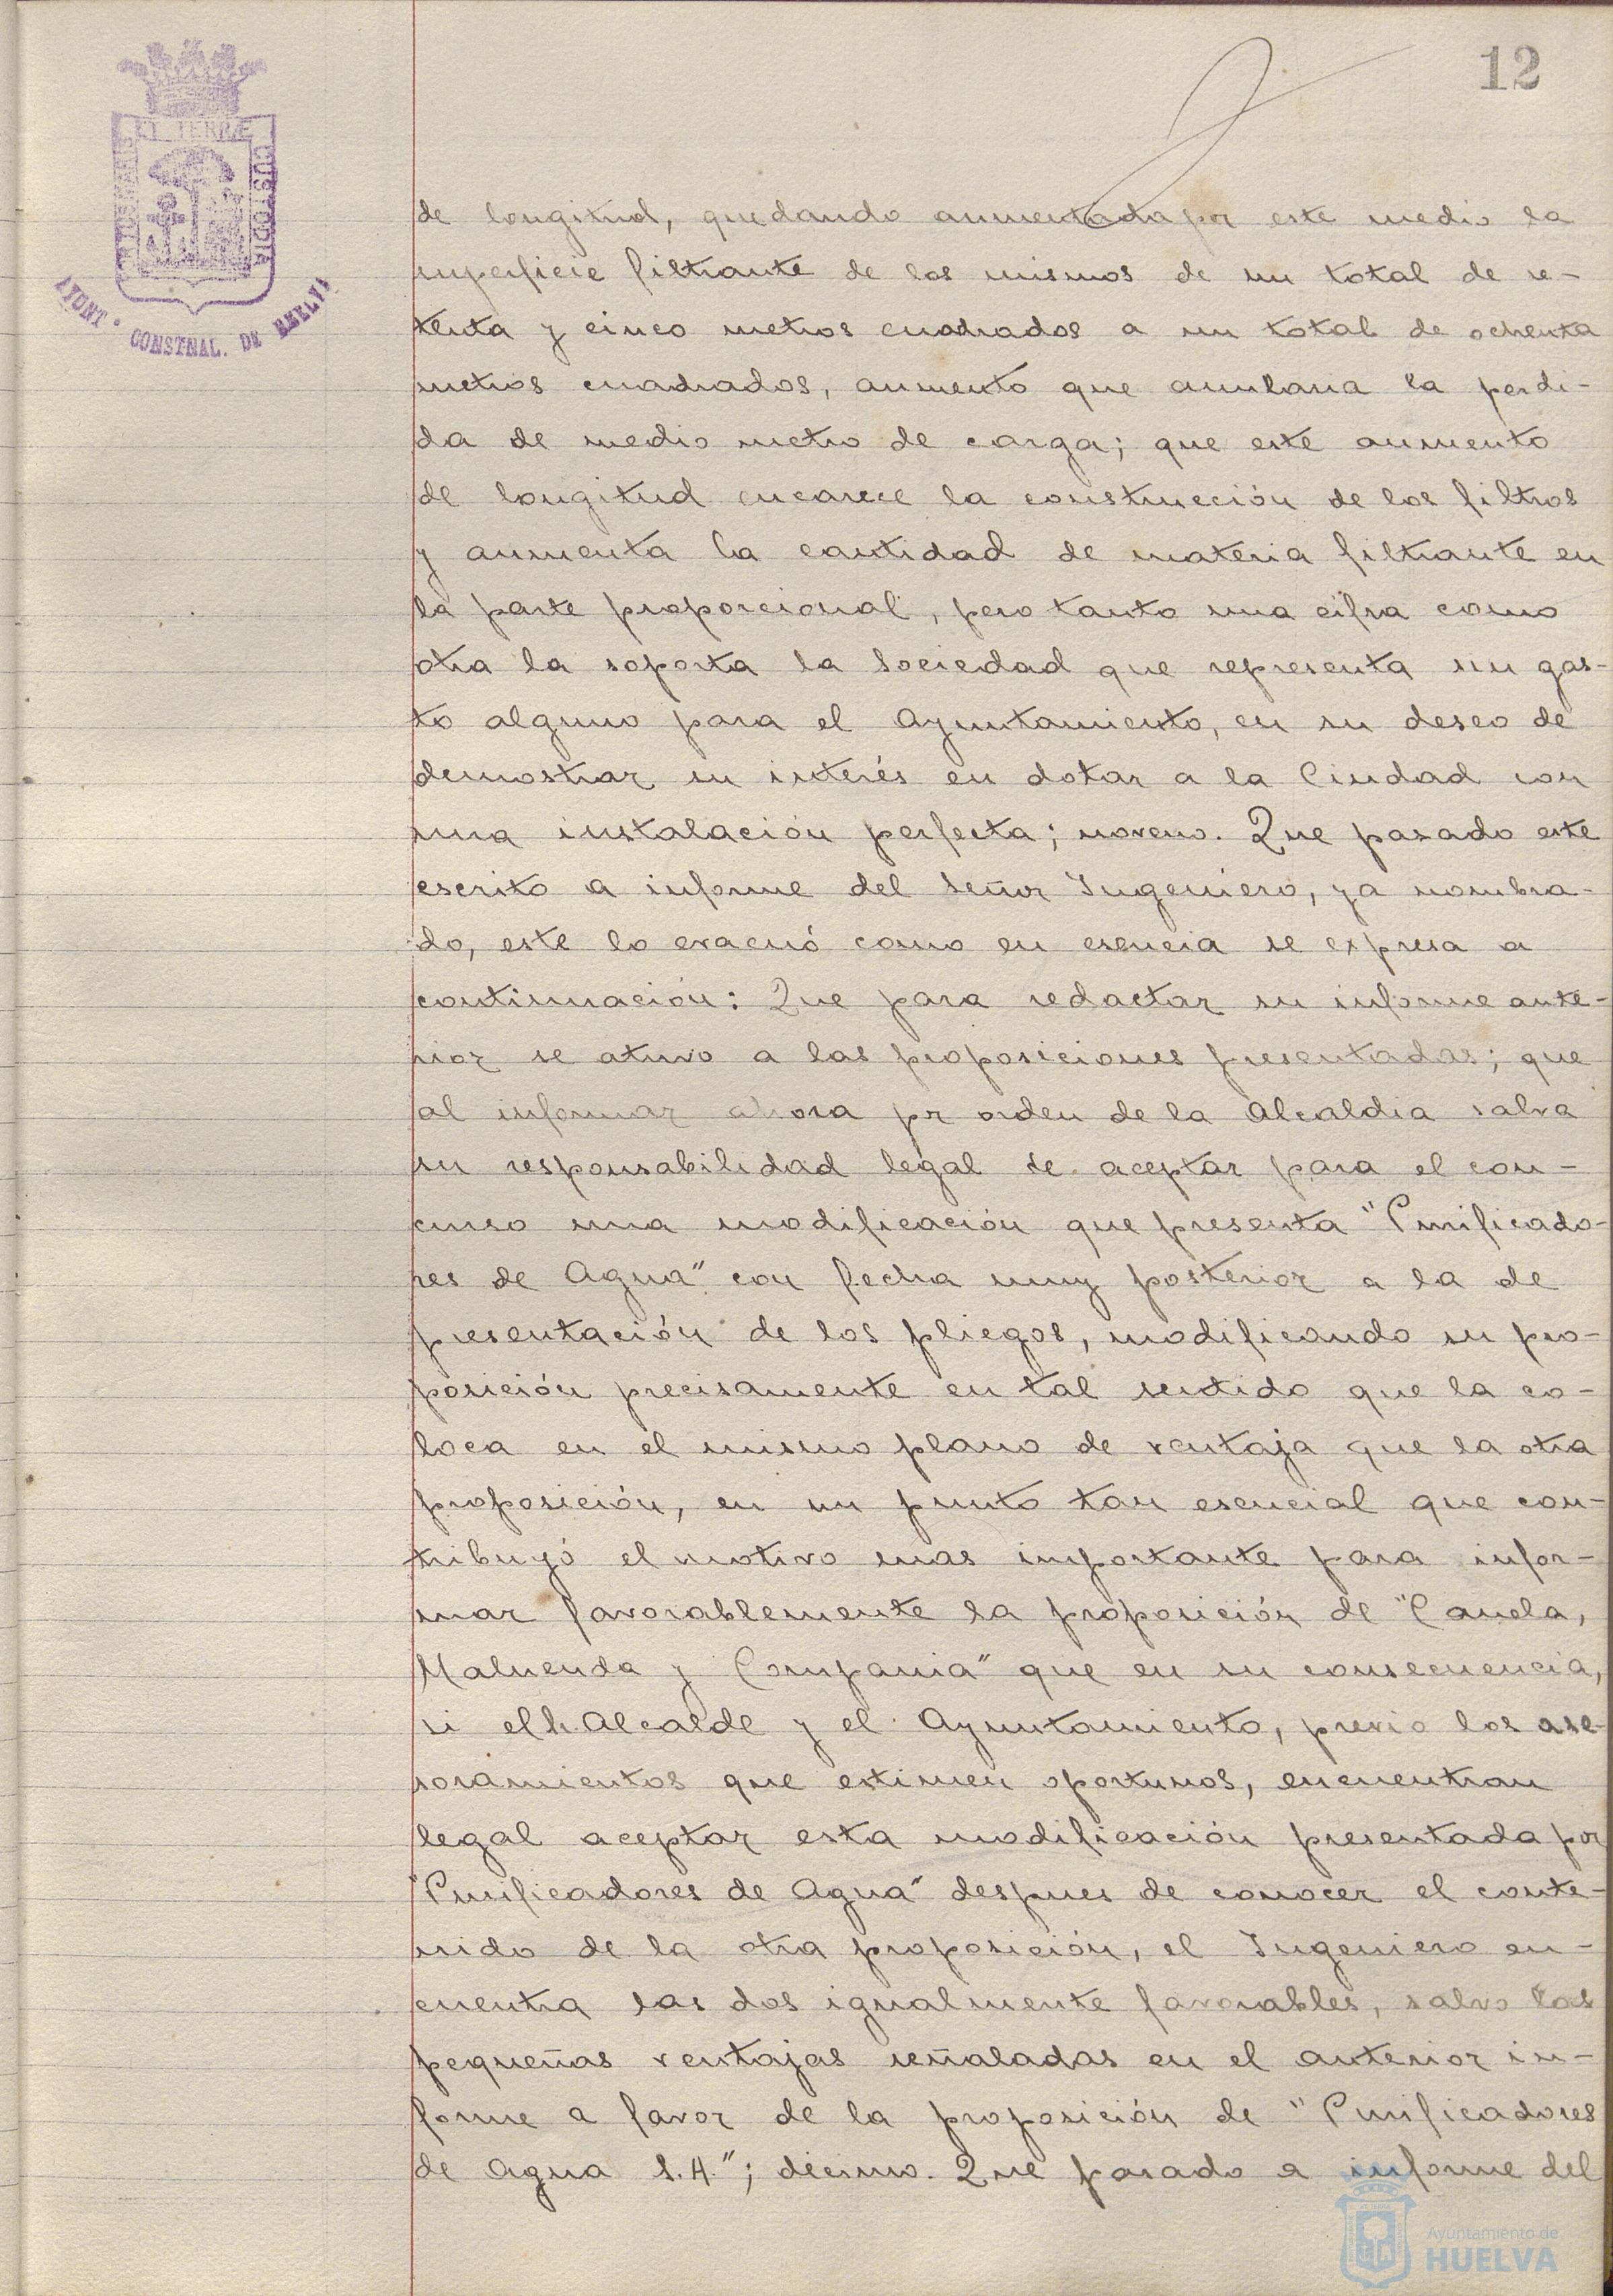 12
ET TERRÆ
CUSTODIA
AYUNT · CONSTNAL. DE HUELVA
de longitud, quedando aumentada por este medio la
superficie filtrante de los mismos de un total de se-
tenta y cinco metros cuadrados a un total de ochenta
metros cuadrados, aumento que anularia la perdi-
da de medio metro de carga; que este aumento
de longitud encarece la construcción de los filtros
y aumenta la cantidad de materia filtrante en
la parte proporcional, pero tanto una cifra como
otra la soporta la Sociedad que representa sin gas-
to alguno para el Ayuntamiento, en su deseo de
demostrar su interés en dotar a la Ciudad con
una instalación perfecta; noveno. Que pasado este
escrito a informe del Señor Ingeniero, ya nombra-
do, este lo evacuó como en esencia se expresa a
continuación: Que para redactar su informe ante-
rior se atuvo a las proposiciones presentadas; que
al informar ahora por orden de la Alcaldia salva
su responsabilidad legal de aceptar para el con-
curso una modificación que presenta "Purificado-
res de Agua" con fecha muy posterior a la de
presentación de los pliegos, modificando su pro-
posición precisamente en tal sentido que la co-
loca en el mismo plano de ventaja que la otra
proposición, en un punto tan esencial que con-
tribuyó el motivo mas importante para infor-
mar favorablemente la proposición de "Canela,
Maluenda y Compania" que en su consecuencia,
si el Sr. Alcalde y el Ayuntamiento, previo los ase-
soramientos que estimen oportunos, encuentran
legal aceptar esta modificación presentada por
"Purificadores de Agua" despues de conocer el conte-
nido de la otra proposición, el Ingeniero en-
cuentra las dos igualmente favorables, salvo las
pequeñas ventajas señaladas en el anterior in-
forme a favor de la proposición de "Purificadores
de Agua S.A."; décimo. Que pasado a informe del
Ayuntamiento de
HUELVA